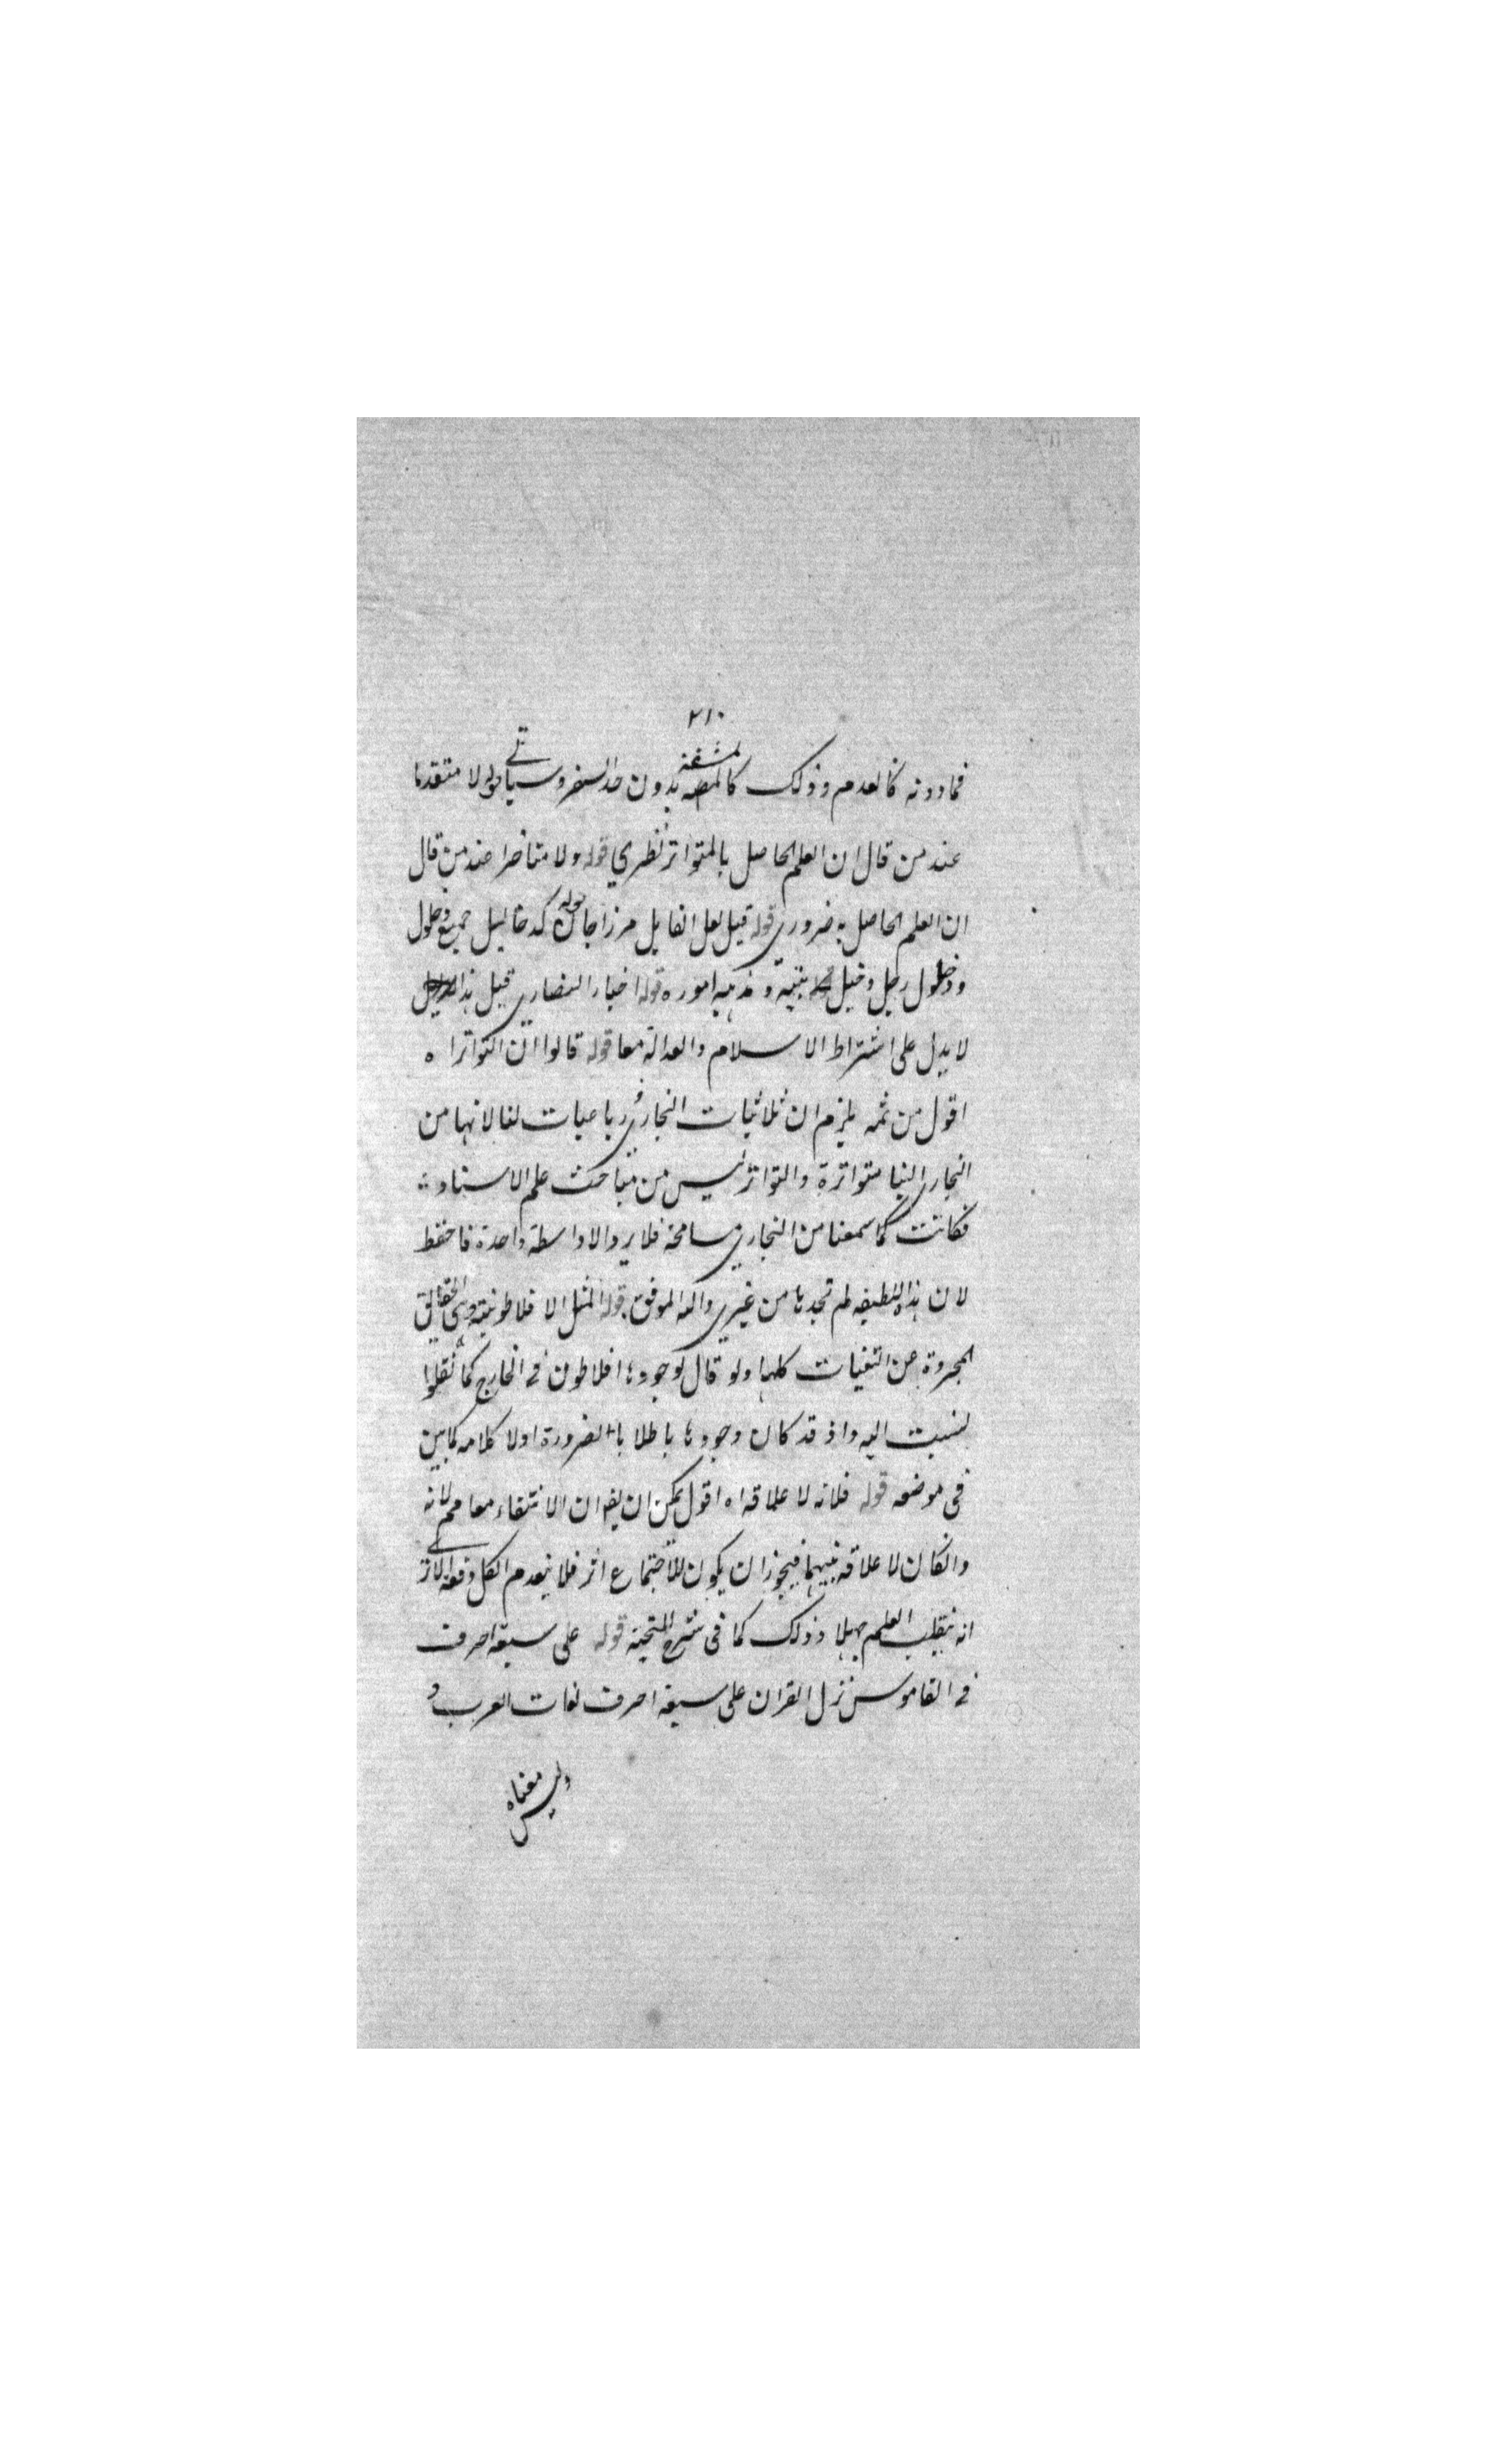 ٢١٠
فما دونه كالعدم وذلك كالمشقة بدون حد السفر وسياتي قوله لا متقدما
عند من قال ان العلم الحاصل بالمتواتر نظري قوله ولا متاخرا عند من قال
ان العلم الحاصل به ضروري قوله قيل لعل القايل مرزا جان قوله كدخاليل جميع دخول
ودخول رجل وخيل بيته ومذهبه اموره قوله اخبار النصاري قيل هذا الدليل
لا يدل على اشتراط الاسلام والعدالة معا قوله قالوا ان التواتر اه
اقول من ثمه يلزم ان ثلاثيات البخاري رباعيات لنا لانها من
البخاري الينا متواترة والتواتر ليس من مباحث علم الاسناد
فكانت كما سمعنا من البخاري سامحة فلا يرد الا واسطة واحدة فاحفظ
لان هذه اللطيفه لم تجدها من غيري والله الموفق قوله المثل الافلاطونية وهي الحقايق
المجردة عن التعينات كلها ولو قال بوجودها افلاطون في الخارج كما نقلوا
لنسبت اليه واذ قد كان وجودها باطلا بالضرورة اولا كلامه كما بين
في موضعه قوله فلانه لا علاقه اه اقول يمكن ان يقو ان الانتقاء معا مم لانه
وانكان لا علاقه بينهما فيجوز ان يكون للاجتماع اثر فلا ينعدم الكل دفعة
انه ينقلب العلم جهلا وذلك كما في شرح قوله على سبعة احرف
في القاموس نزل القران على سبعة احرف لغات العرب و
وليس معناه